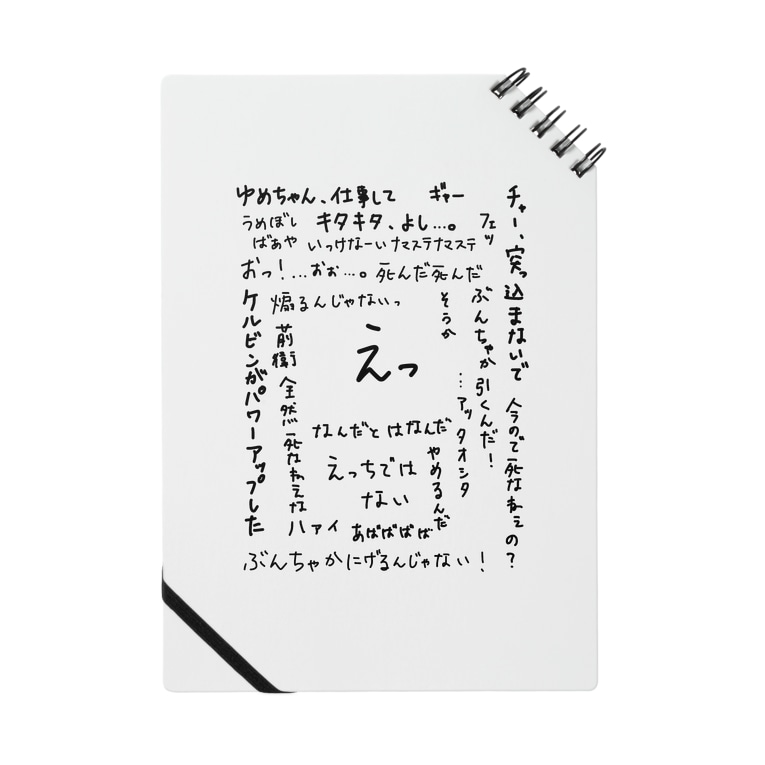 ゆめちゃん、仕事して
ギャー
チャー、突っ込まないで
うめぼし
ばあや
キタキタ、よし…。
フェッ
いっけなーい
ナマステナマステ
おっ!…おぉ…。
死んだ死んだ
ケルビンがパワーアップした
煽るんじゃないっ
そうか
ぶんちゃか引くんだ!
前衛全然死なねぇな
えっ
…アッタオシタ
今ので死なねぇの?
なんだとはなんだ
えっちでは
ない
やめるんだ
ハァイ
あばばばば
ぶんちゃかにげるんじゃない!